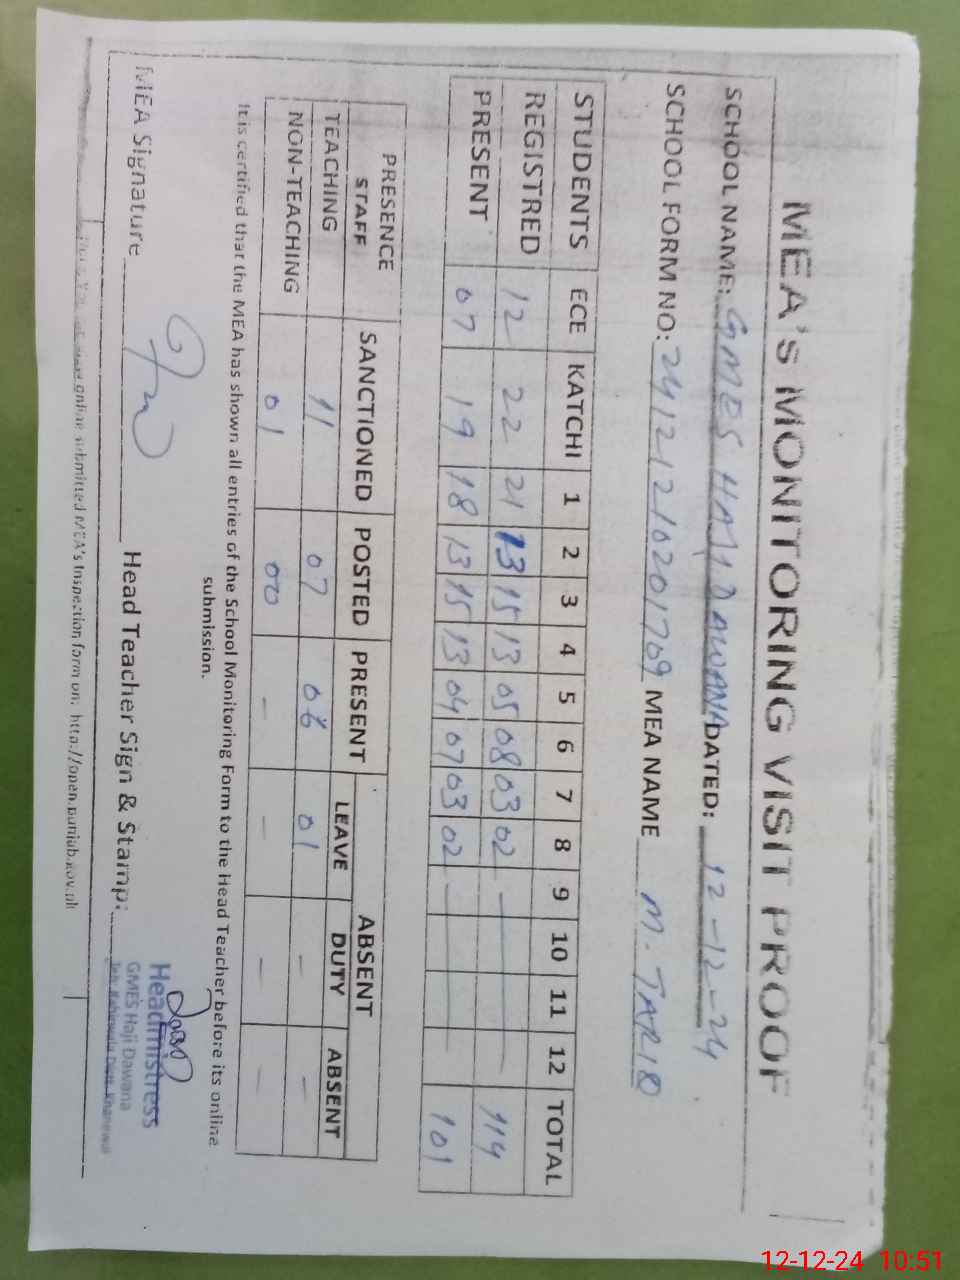 MEA's MONITORING VISIT PROOF
SCHOOL NAME: GMES HAJI DAWANA DATED: 12-12-24
SCHOOL FORM NO: 24121210201709 MEA NAME M. TARIQ
STUDENTS ECE KATCHI 1 2 3 4 5 6 7 8 9 10 11 12 TOTAL
REGISTRED 12 22 21 13 15 13 05 08 03 02 114
PRESENT 07 19 18 13 15 13 04 07 03 02 101
PRESENCE STAFF SANCTIONED POSTED PRESENT ABSENT
LEAVE DUTY ABSENT
TEACHING 11 07 06 01 - -
NON-TEACHING 01 00 - - - -
It is certified that the MEA has shown all entries of the School Monitoring Form to the Head Teacher before its online
submission.
MEA Signature Head Teacher Sign & Stamp:
Headmistress
GMES Haji Dawana
Teh: Kabirwala Distt. Khanewal
online submitted MEA's Inspection form on: http://open.punjab.gov.pk
12-12-24 10:51